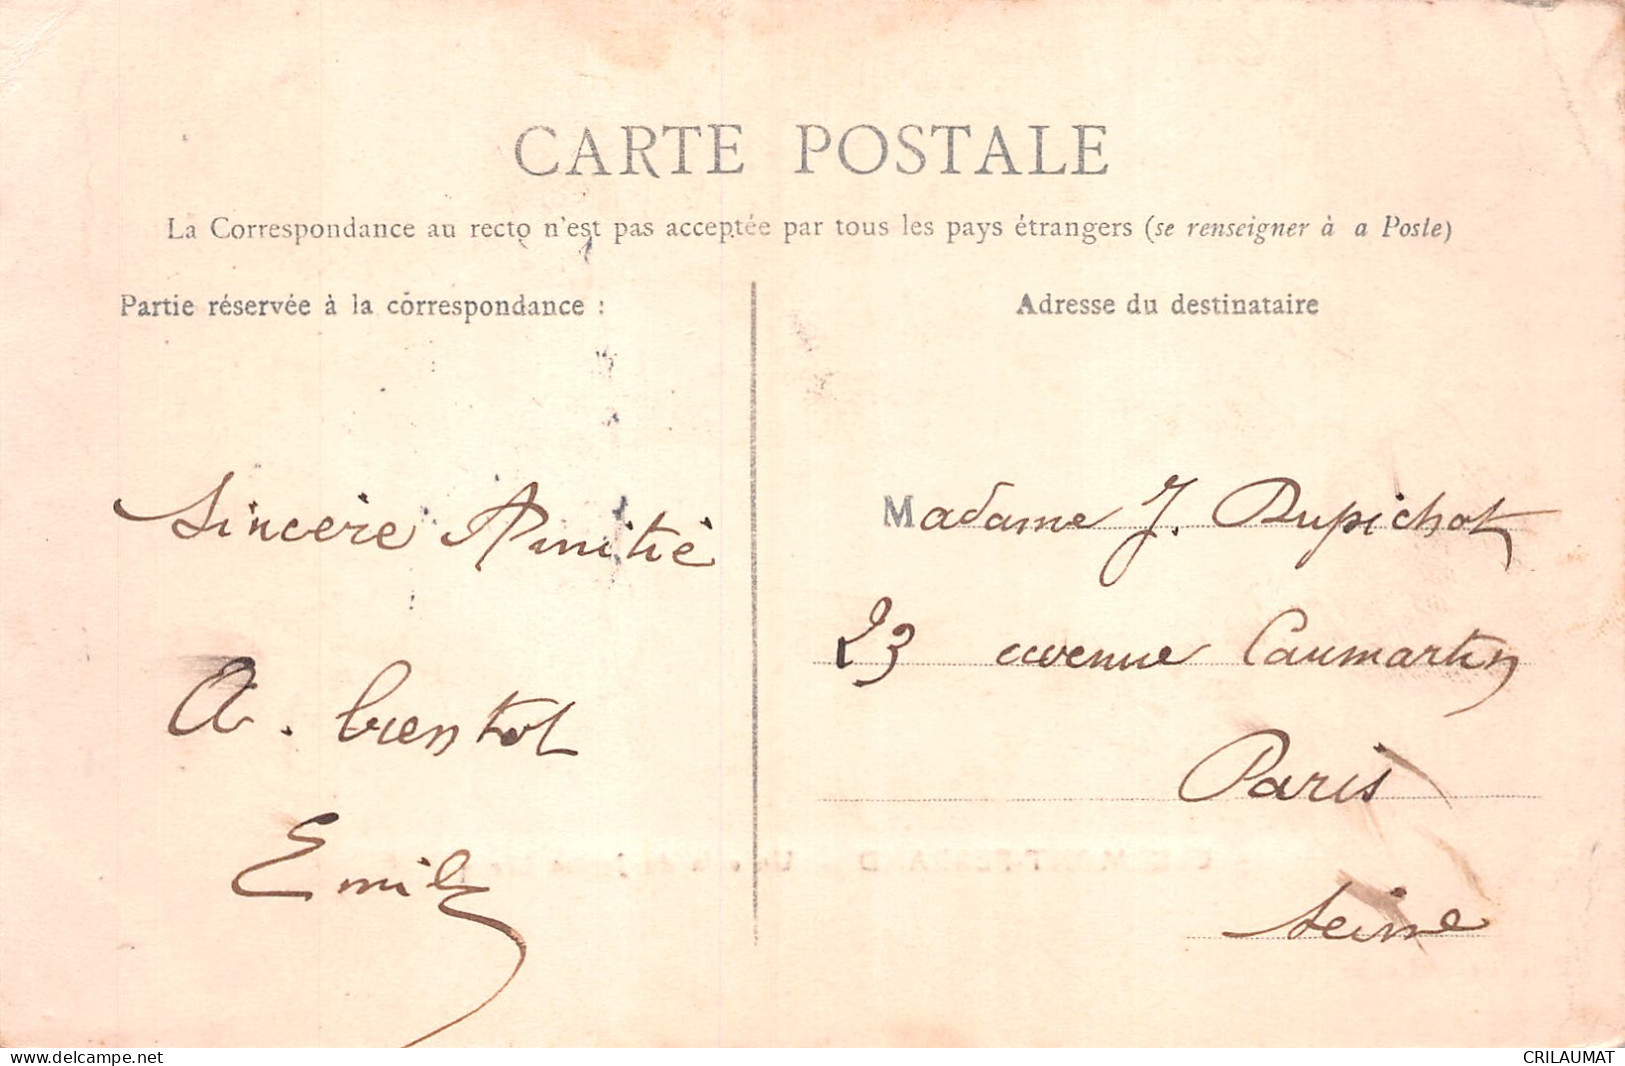 CARTE POSTALE
La Correspondance au recto n'est pas acceptée par tous les pays étrangers (se renseigner à a Poste)
Partie réservée à la correspondance :
Adresse du destinataire
Sincère Amitié
A. bientot
Emile
Madame J. Dupichot
23 avenue Caumartin
Paris
Seine
www.delcampe.net
CRILAUMAT